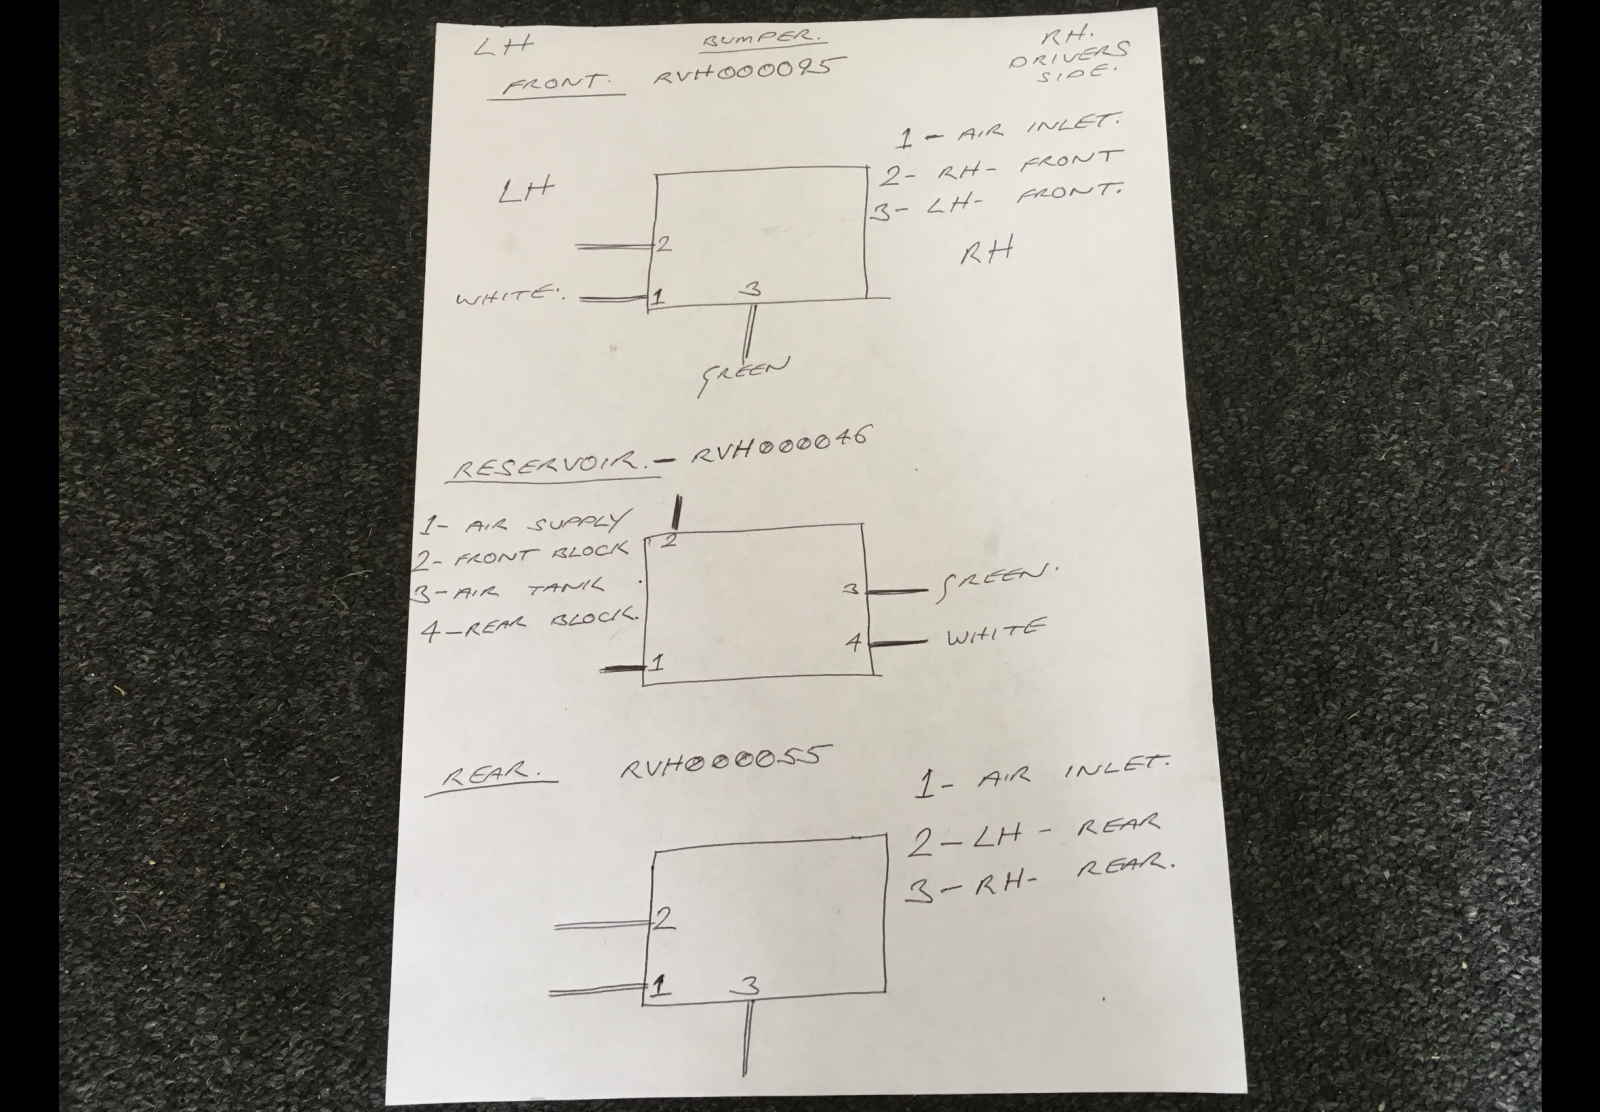 LH BUMPER. RH.
DRIVERS
SIDE.
FRONT. RVH000095
1 - AIR INLET.
2 - RH - FRONT
3 - LH - FRONT.
LH
RH
2
WHITE. 1 3
GREEN
RESERVOIR. - RVH000046
1 - AIR SUPPLY
2 - FRONT BLOCK
3 - AIR TANK
4 - REAR BLOCK.
2
3 GREEN.
4 WHITE
1
REAR. RVH000055
1 - AIR INLET.
2 - LH - REAR
3 - RH - REAR.
2
1 3